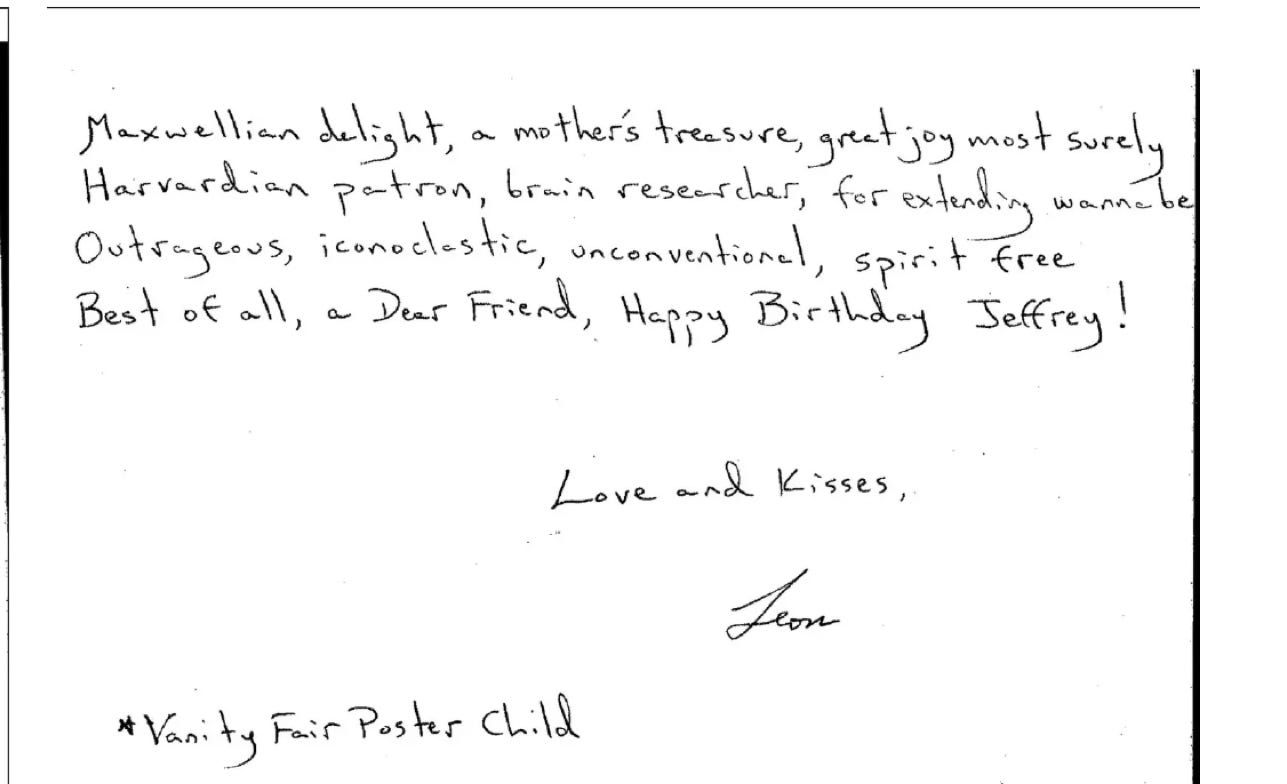 Maxwellian delight, a mother's treasure, great joy most surely
Harvardian patron, brain researcher, for extending wannabe
Outrageous, iconoclastic, unconventional, spirit free
Best of all, a Dear Friend, Happy Birthday Jeffrey!
Love and Kisses,
Leon
*Vanity Fair Poster Child